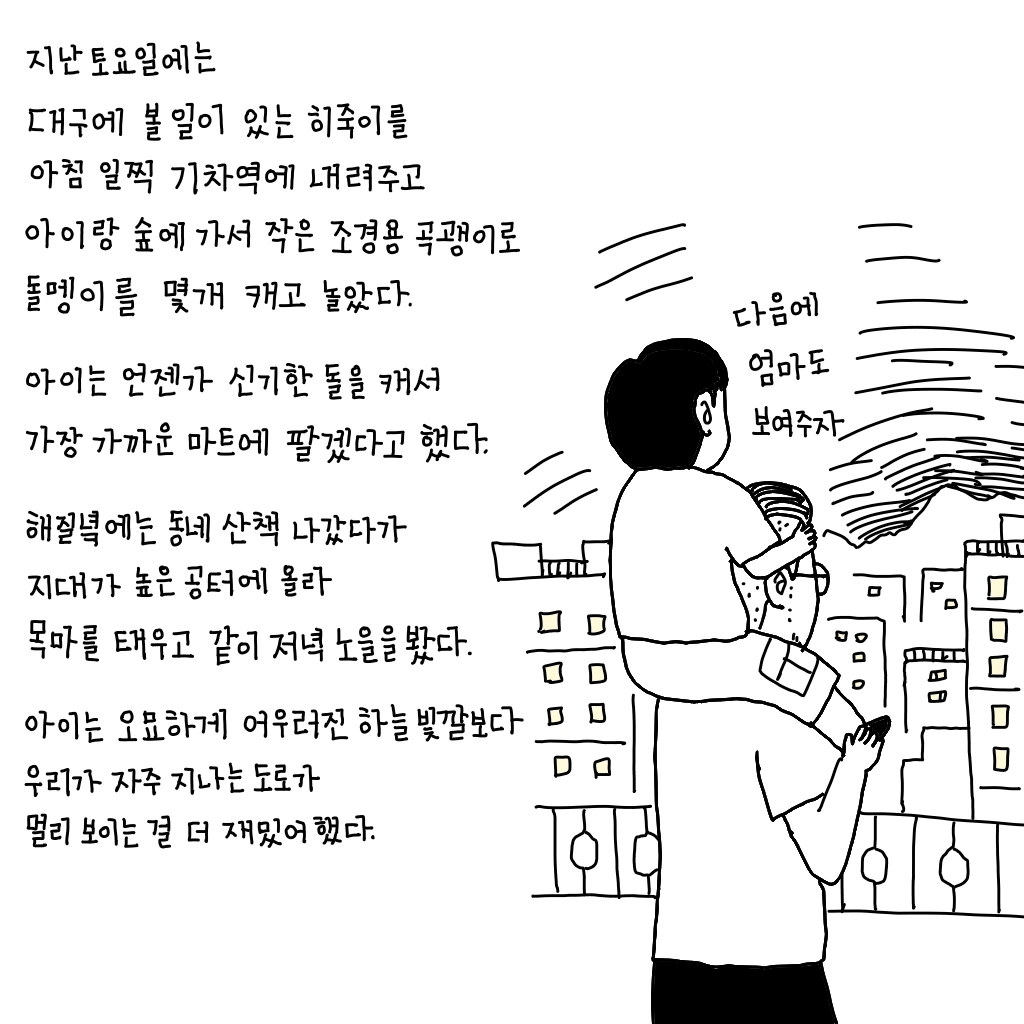 지난 토요일에는
대구에 볼 일이 있는 히죽이를
아침 일찍 기차역에 내려주고
아이랑 숲에 가서 작은 조경용 곡괭이로
돌멩이를 몇개 캐고 놀았다.
아이는 언젠가 신기한 돌을 캐서
가장 가까운 마트에 팔겠다고 했다.
해질녘에는 동네 산책 나갔다가
지대가 높은 공터에 올라
목마를 태우고 같이 저녁 노을을 봤다.
아이는 오묘하게 어우러진 하늘 빛깔보다
우리가 자주 지나는 도로가
멀리 보이는 걸 더 재밌어 했다.
다음에
엄마도
보여주자